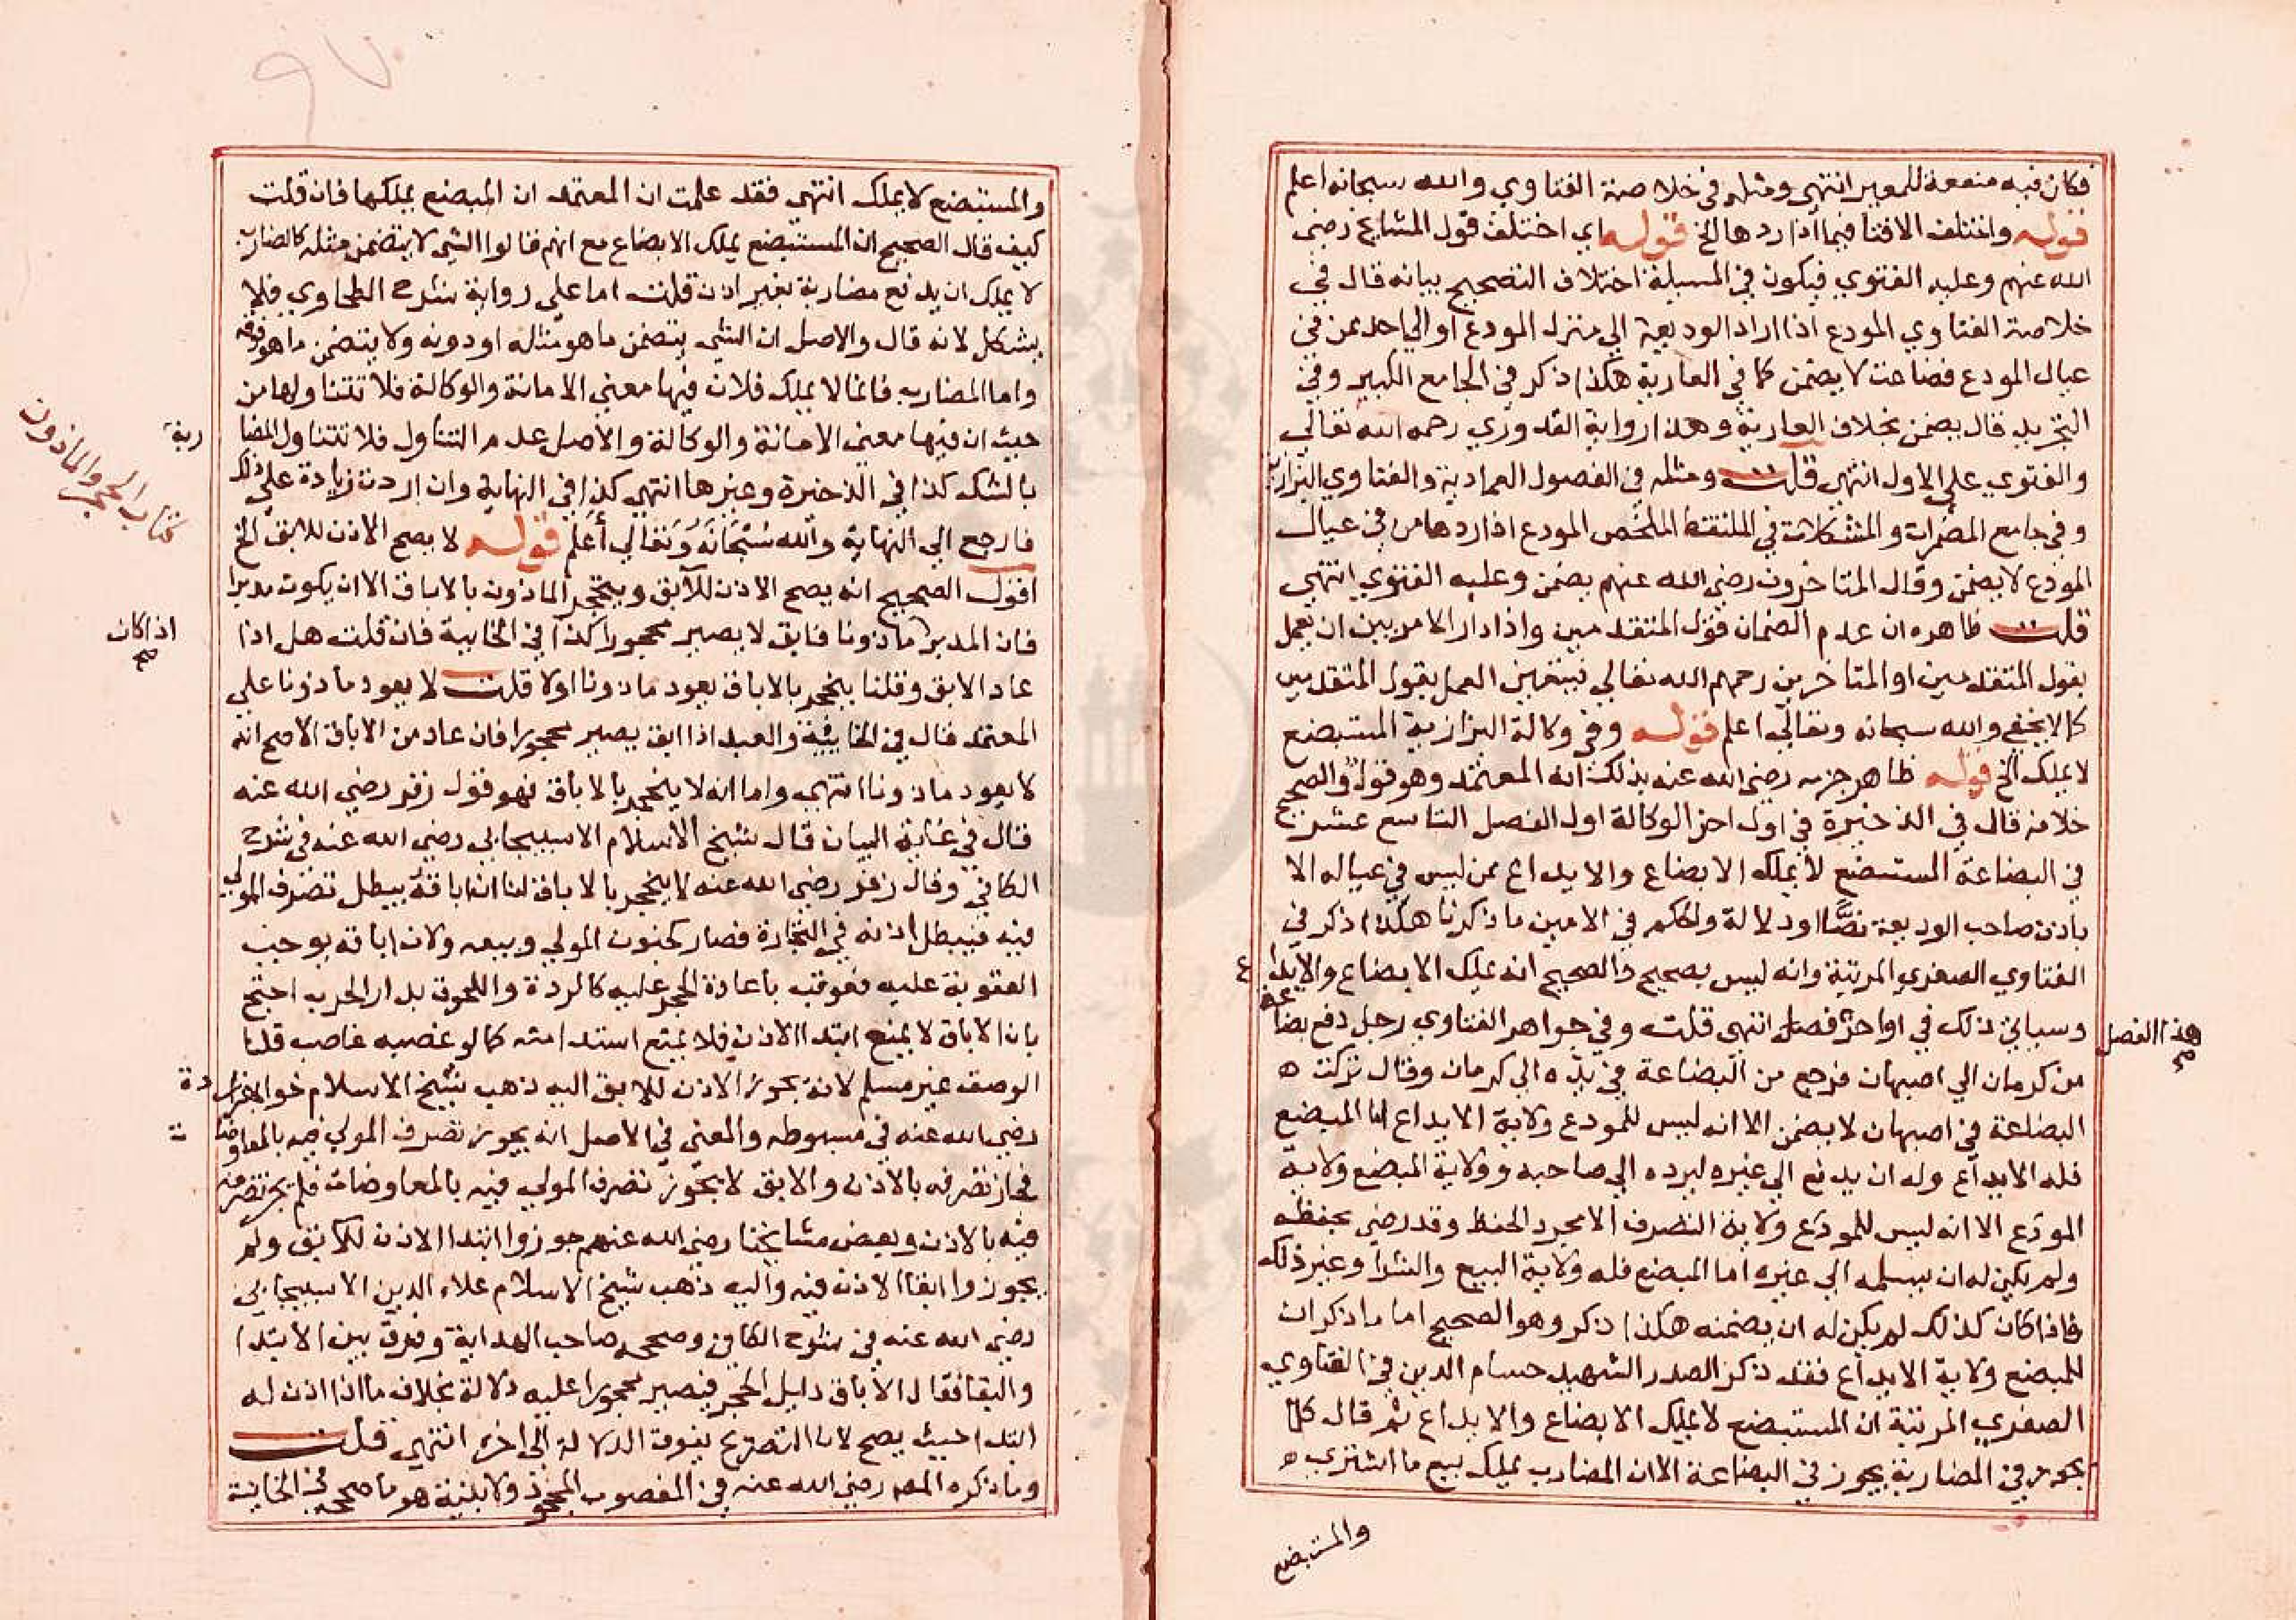 فكان فيه منفعة للمعير انتهى ومثله في خلاصة الفتاوي والله سبحانه اعلم
قوله واختلف الافتا فيما اذا ردها الخ قوله اي اختلف قول المشايخ رضي
الله عنهم وعليه الفتوي فيكون في المسيلة اختلاف التصحيح بيانه قال في
خلاصة الفتاوي المودع اذا اراد الوديعة الي منزل المودع او الي احد ممن في
عيال المودع فضاعت لا يضمن كما في العارية هكذا ذكر في الجامع الكبير وفي
التجريد قال يضمن بخلاف العارية وهذا رواية القدوري رحمه الله تعالي
والفتوي علي الاول انتهى قلت ومثله في الفصول العمادية والفتاوي البزازية
وفي جامع المضمرات والمشكلات في الملتقط الملخص المودع اذا ردها من في عيال
المودع لا يضمن وقال المتاخرون رضي الله عنهم يضمن وعليه الفتوي انتهى
قلت ظاهره ان عدم الضمان قول المتقدمين واذا دار الامر بين ان يعمل
بقول المتقدمين او المتاخرين رحمهم الله تعالي فيتعين العمل بقول المتقدمين
كما لا يخفي والله سبحانه وتعالي اعلم قوله وفي وكالة البزازية المستبضع
لا يملك الخ قوله ظاهر جزمه رضي الله عنه بذلك انه المعتمد وهو قول والصحيح
خلافه قال في الذخيرة في اول اخر الوكالة اول الفصل التاسع عشر
في البضاعة المستبضع لا يملك الابضاع والايداع ممن ليس في عياله الا
باذن صاحب الوديعة نصًّا او دلالة والحكم في الامين ما ذكرنا هكذا ذكر في
الفتاوي الصغري المرتبة وانه ليس بصحيح والصحيح انه يملك الابضاع والايداع
وسياتي ذلك في اواخر فصل انتهى قلت وفي جواهر الفتاوي رجل دفع بضاعة
هذا الفصل صح
من كرمان الي اصبهان فرجع من البضاعة في يده الي كرمان وقال تركت
البضاعة في اصبهان لا يضمن الا انه ليس للمودع ولاية الايداع اما المبضع
فله الايداع وله ان يدفع الي غيره ليرده الي صاحبه وولاية المبضع ولاية
المودع الا انه ليس للمودع ولاية التصرف الا مجرد الحفظ وقد رضي بحفظه
ولم يكن له ان يسلمه الي غيره اما المبضع فله ولاية البيع والشرا وغير ذلك
فاذا كان كذلك لم يكن له ان يضمنه هكذا ذكر وهو الصحيح اما ما ذكر ان
للمبضع ولاية الايداع فقد ذكر الصدر الشهيد حسام الدين في الفتاوي
الصغري المرتبة ان المستبضع لا يملك الابضاع والايداع ثم قال كل ما
يجوز في المضاربة يجوز في البضاعة الا ان المضارب يملك بيع ما اشتري
والمستبضع
٩٧
والمستبضع لا يملك انتهى فقد علمت ان المعتمد ان المبضع يملكها فان قلت
كيف قال الصحيح ان المستبضع يملك الابضاع مع انهم قالوا الشي لا يتضمن مثله كالمضارب
لا يملك ان يدفع مضاربة بغير اذن قلت اما علي رواية شرح الطحاوي فلا
يشكل لانه قال والاصل ان الشي يتضمن ما هو مثله او دونه ولا يتضمن ما هو فوقه
واما المضارب فانما لا يملك فلان فيها معني الامانة والوكالة فلا تتناولها من
حيث ان فيها معني الامانة والوكالة والاصل عدم التناول فلا تتناول المضا
ربة
بالشك كذا في الذخيرة وغيرها انتهى كذا في النهاية وان اردت زيادة علي ذلك
كتاب الحجر والماذون
فارجع الي النهاية والله سُبْحَانَهُ وَتَعَالي أَعلم قوله لا يصح الاذن للابق الخ
اقول الصحيح انه يصح الاذن للآبق وينحجر الماذون بالاباق الا ان يكون مدبرا
فان المدبر ماذونا فابق لا يصير محجورا كذا في الخانية فان قلت هل اذا
اذا كان صح
عاد الابق وقلنا ينحجر بالاباق يعود ماذونا اولا قلت لا يعود ماذونا علي
المعتمد قال في الخانية والعبد اذا ابق يصير محجورا فان عاد من الاباق الاصح انه
لا يعود ماذونا انتهى واما انه لا ينحجر بالاباق فهو قول زفر رضي الله عنه
قال في غاية البيان قال شيخ الاسلام الاسبيجابي رضي الله عنه في شرح
الكافي وقال زفر رضي الله عنه لا ينحجر بالاباق لنا ان اباقه يبطل تصرف المولي
فيه فيبطل اذنه في التجارة فصار كجنون المولي وبيعه ولان اباقه يوجب
العقوبة عليه فعوقب باعادة الحجر عليه كالردة واللحوق بدار الحرب احتج
بان الاباق لا يمنع ابتدا الاذن فلا يمنع استدامته كما لو غصبه غاصب قلنا
الوصف غير مسلم لانه يجوز الاذن للابق اليه ذهب شيخ الاسلام خواهرزاده
رضي الله عنه في مبسوطه والمعني في الاصل انه يجوز تصرف المولي فيه بالمعاوضات
فجاز تصرفه بالاذن والابق لا يجوز تصرف المولي فيه بالمعاوضات فلم يجز تصرفه
فيه بالاذن وبعض مشايخنا رضي الله عنهم جوزوا ابتدا الاذن للابق ولم
يجوزوا ابقا الاذن فيه واليه ذهب شيخ الاسلام علاء الدين الاسبيجابي
رضي الله عنه في شرح الكافي وصححه صاحب الهداية وفرق بين الابتدا
والبقا فقال الاباق دليل الحجر فيصير محجورا عليه دلالة بخلاف ما اذا اذن له
ابتدا حيث يصح لان التصريح يفوق الدلالة الي اخره انتهى قلت
وما ذكره المصـ رضي الله عنه في المغصوب المجحود ولا بينة هو ما صححه في الخانية